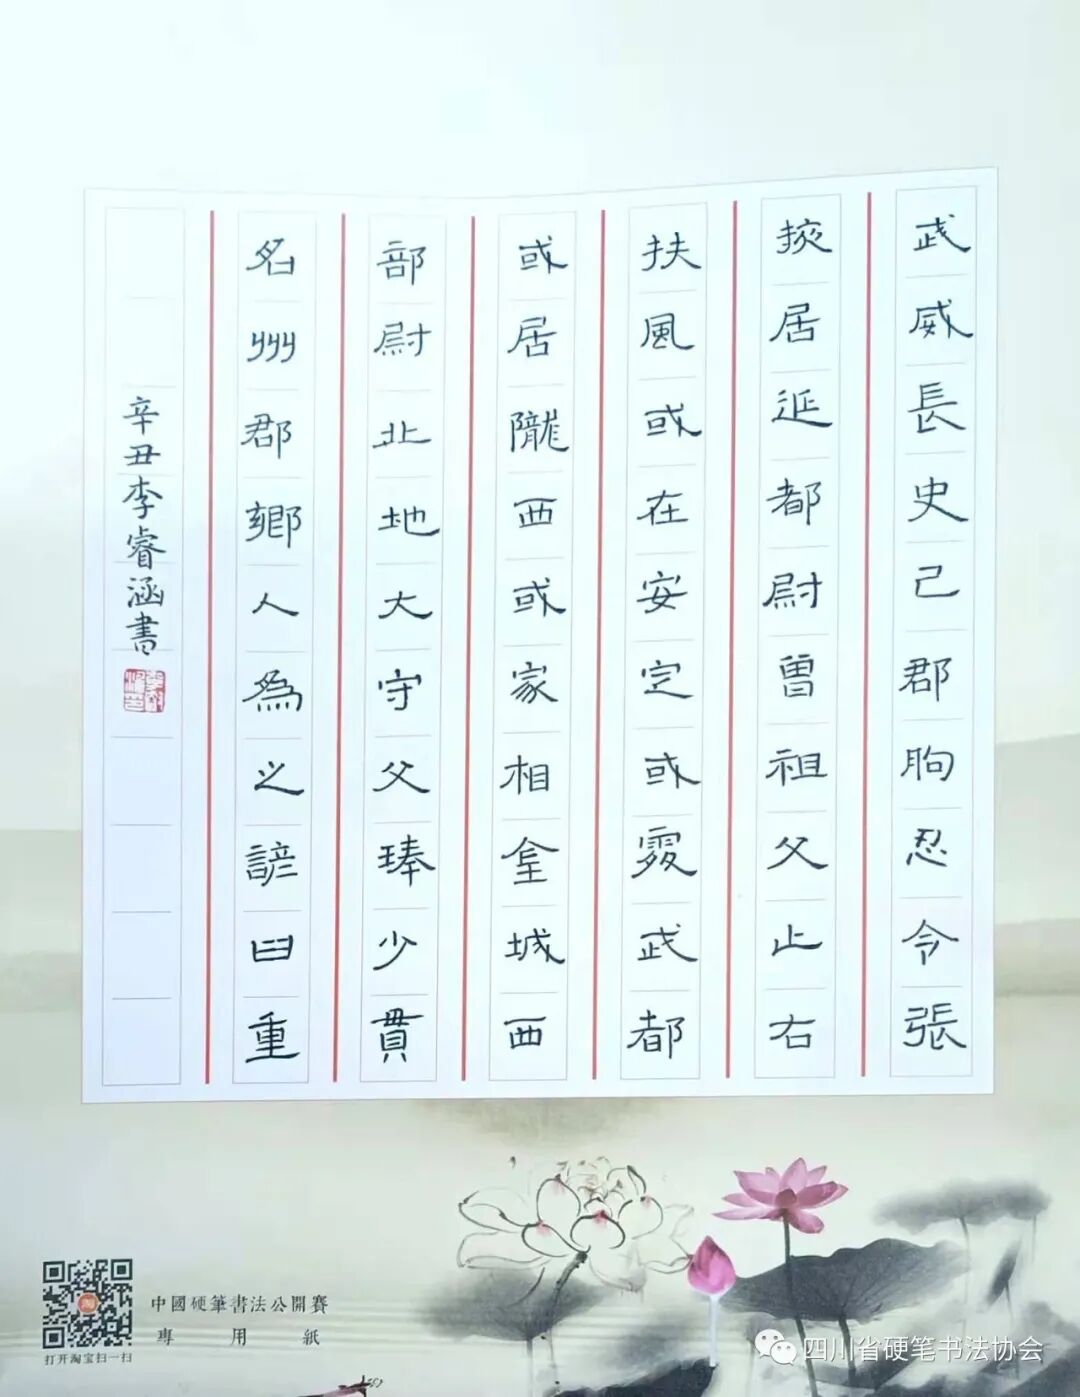 武威長史己郡朐忍令張
掖居延都尉曾祖父止右
扶風或在安定或霙武都
或居隴西或家相皇城西
部尉北地大守父琫少貫
名州郡鄉人爲之諺曰重
辛丑李睿涵書
中國硬筆書法公開賽
專用紙
打开淘宝扫一扫
四川省硬笔书法协会